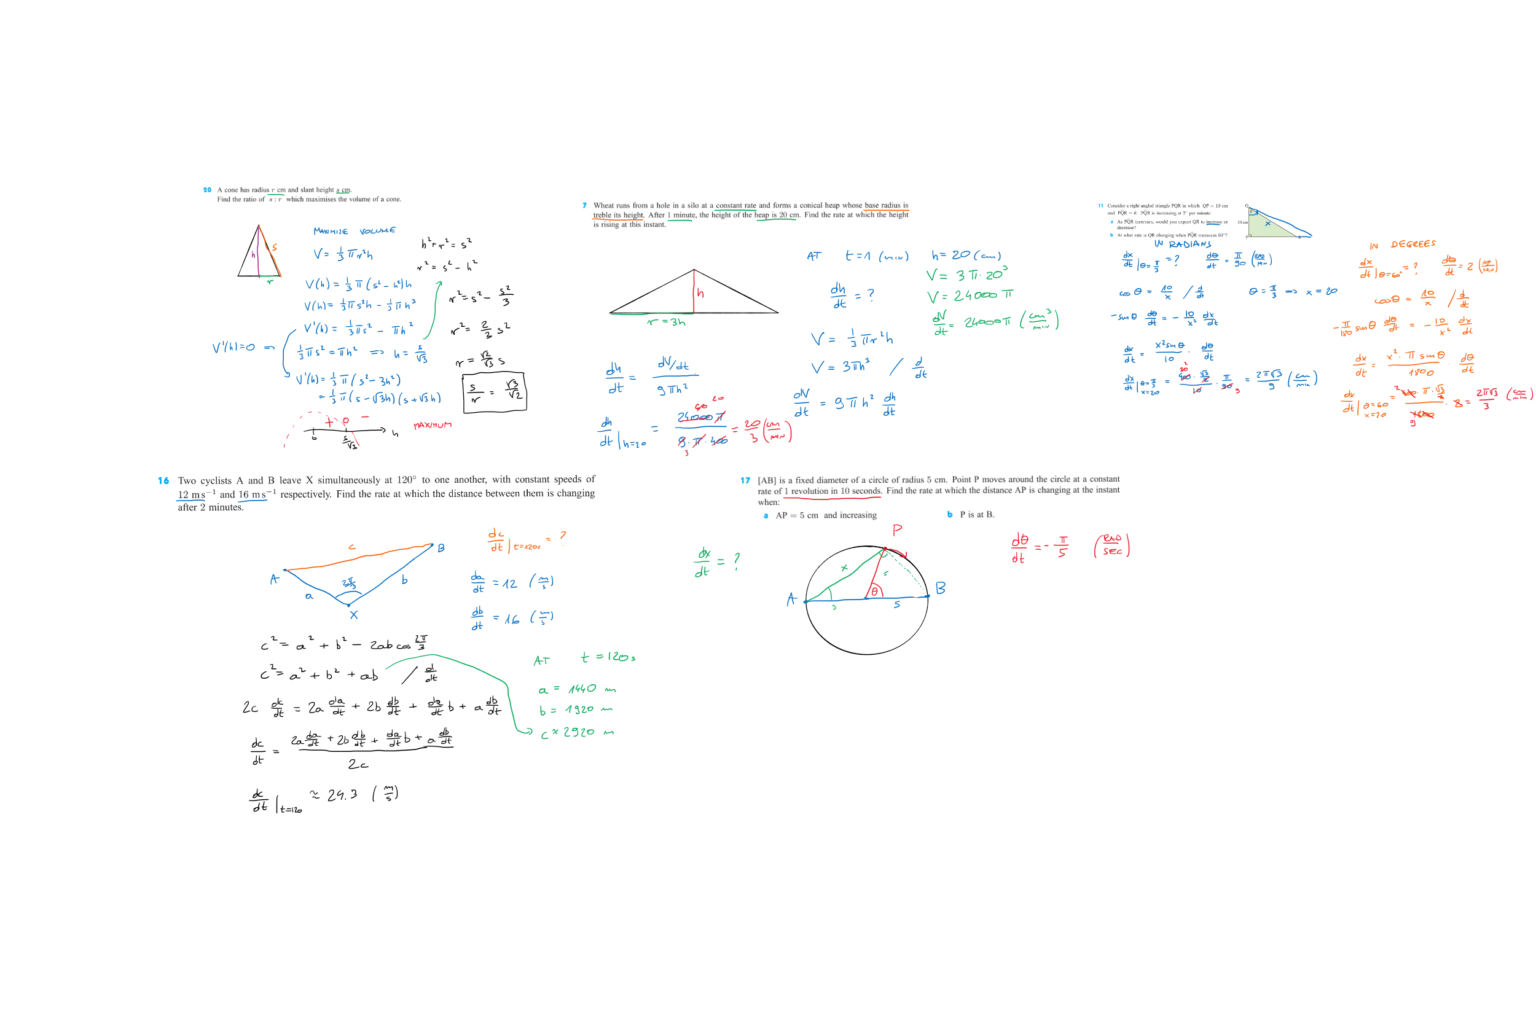 20 A cone has radius r cm and slant height s cm.
Find the ratio of s : r which maximises the volume of a cone.
h
s
r
MAXIMIZE VOLUME
V = 1/3 πr²h
V(h) = 1/3 π(s² - h²)h
V(h) = 1/3 πs²h - 1/3 πh³
V'(h) = 1/3 πs² - πh²
V'(h)=0 ⇒ 1/3 πs² = πh² ⇒ h = s/√3
V'(h) = 1/3 π(s² - 3h²)
= 1/3 π(s - √3h)(s + √3h)
+ 0 -
0 s/√3 h
MAXIMUM
h² + r² = s²
r² = s² - h²
r² = s² - s²/3
r² = 2/3 s²
r = √2/√3 s
s/r = √3/√2
7 Wheat runs from a hole in a silo at a constant rate and forms a conical heap whose base radius is
treble its height. After 1 minute, the height of the heap is 20 cm. Find the rate at which the height
is rising at this instant.
h
r = 3h
AT t=1 (min) h = 20 (cm)
dh/dt = ?
V = 3π·20³
V = 24000π
dV/dt = 24000π (cm³/min)
V = 1/3 πr²h
V = 3πh³ / d/dt
dV/dt = 9πh² dh/dt
dh/dt = dV/dt / 9πh²
dh/dt | h=20 = 24000π / 9·π·400 = 20/3 (cm/min)
11 Consider a right angled triangle PQR in which QP = 10 cm
x
IN RADIANS
dx/dt | θ=π/3 = ? dθ/dt = π/90 (RAD/MIN)
cos θ = 10/x / d/dt θ = π/3 ⇒ x = 20
-sin θ dθ/dt = - 10/x² dx/dt
dx/dt = x² sin θ / 10 · dθ/dt
= 2π√3/9 (cm/min)
IN DEGREES
dx/dt | θ=60° = ? dθ/dt = 2
cos θ = 10/x / d/dt
-π/180 sin θ dθ/dt = - 10/x² dx/dt
dx/dt = x²·π sin θ / 1800 · dθ/dt
16 Two cyclists A and B leave X simultaneously at 120° to one another, with constant speeds of
12 m s⁻¹ and 16 m s⁻¹ respectively. Find the rate at which the distance between them is changing
after 2 minutes.
A
B
X
a
b
c
2π/3
dc/dt | t=120s = ?
da/dt = 12 (m/s)
db/dt = 16 (m/s)
c² = a² + b² - 2ab cos 2π/3
c² = a² + b² + ab / d/dt
2c dc/dt = 2a da/dt + 2b db/dt + da/dt b + a db/dt
dc/dt = 2a da/dt + 2b db/dt + da/dt b + a db/dt / 2c
dc/dt | t=120 ≈ 24.3 (m/s)
AT t = 120 s
a = 1440 m
b = 1920 m
c ≈ 2920 m
17 [AB] is a fixed diameter of a circle of radius 5 cm. Point P moves around the circle at a constant
rate of 1 revolution in 10 seconds. Find the rate at which the distance AP is changing at the instant
when:
a AP = 5 cm and increasing b P is at B.
dx/dt = ?
P
x
A
B
θ
5
dθ/dt = - π/5 (RAD/SEC)